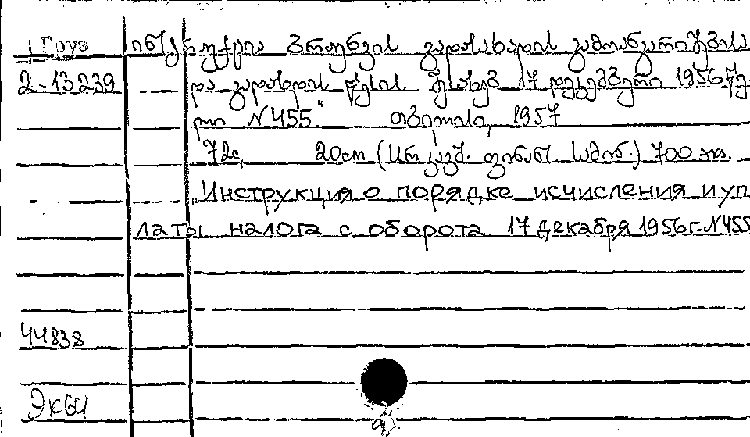 Груз ინსტრუქცია ბრუნვის გადასახადის გამოანგარიშებისა
2-13239 და გადახდის წესის შესახებ 17 დეკემბერი 1956 წე
ლი N455. თბილისი, 1957
72с, 20cm (სსრ კავშ. ფინანს. სამინ.) 700 ც.
Инструкция о порядке исчисления и уп
латы налога с оборота 17 декабря 1956г. N455
44838